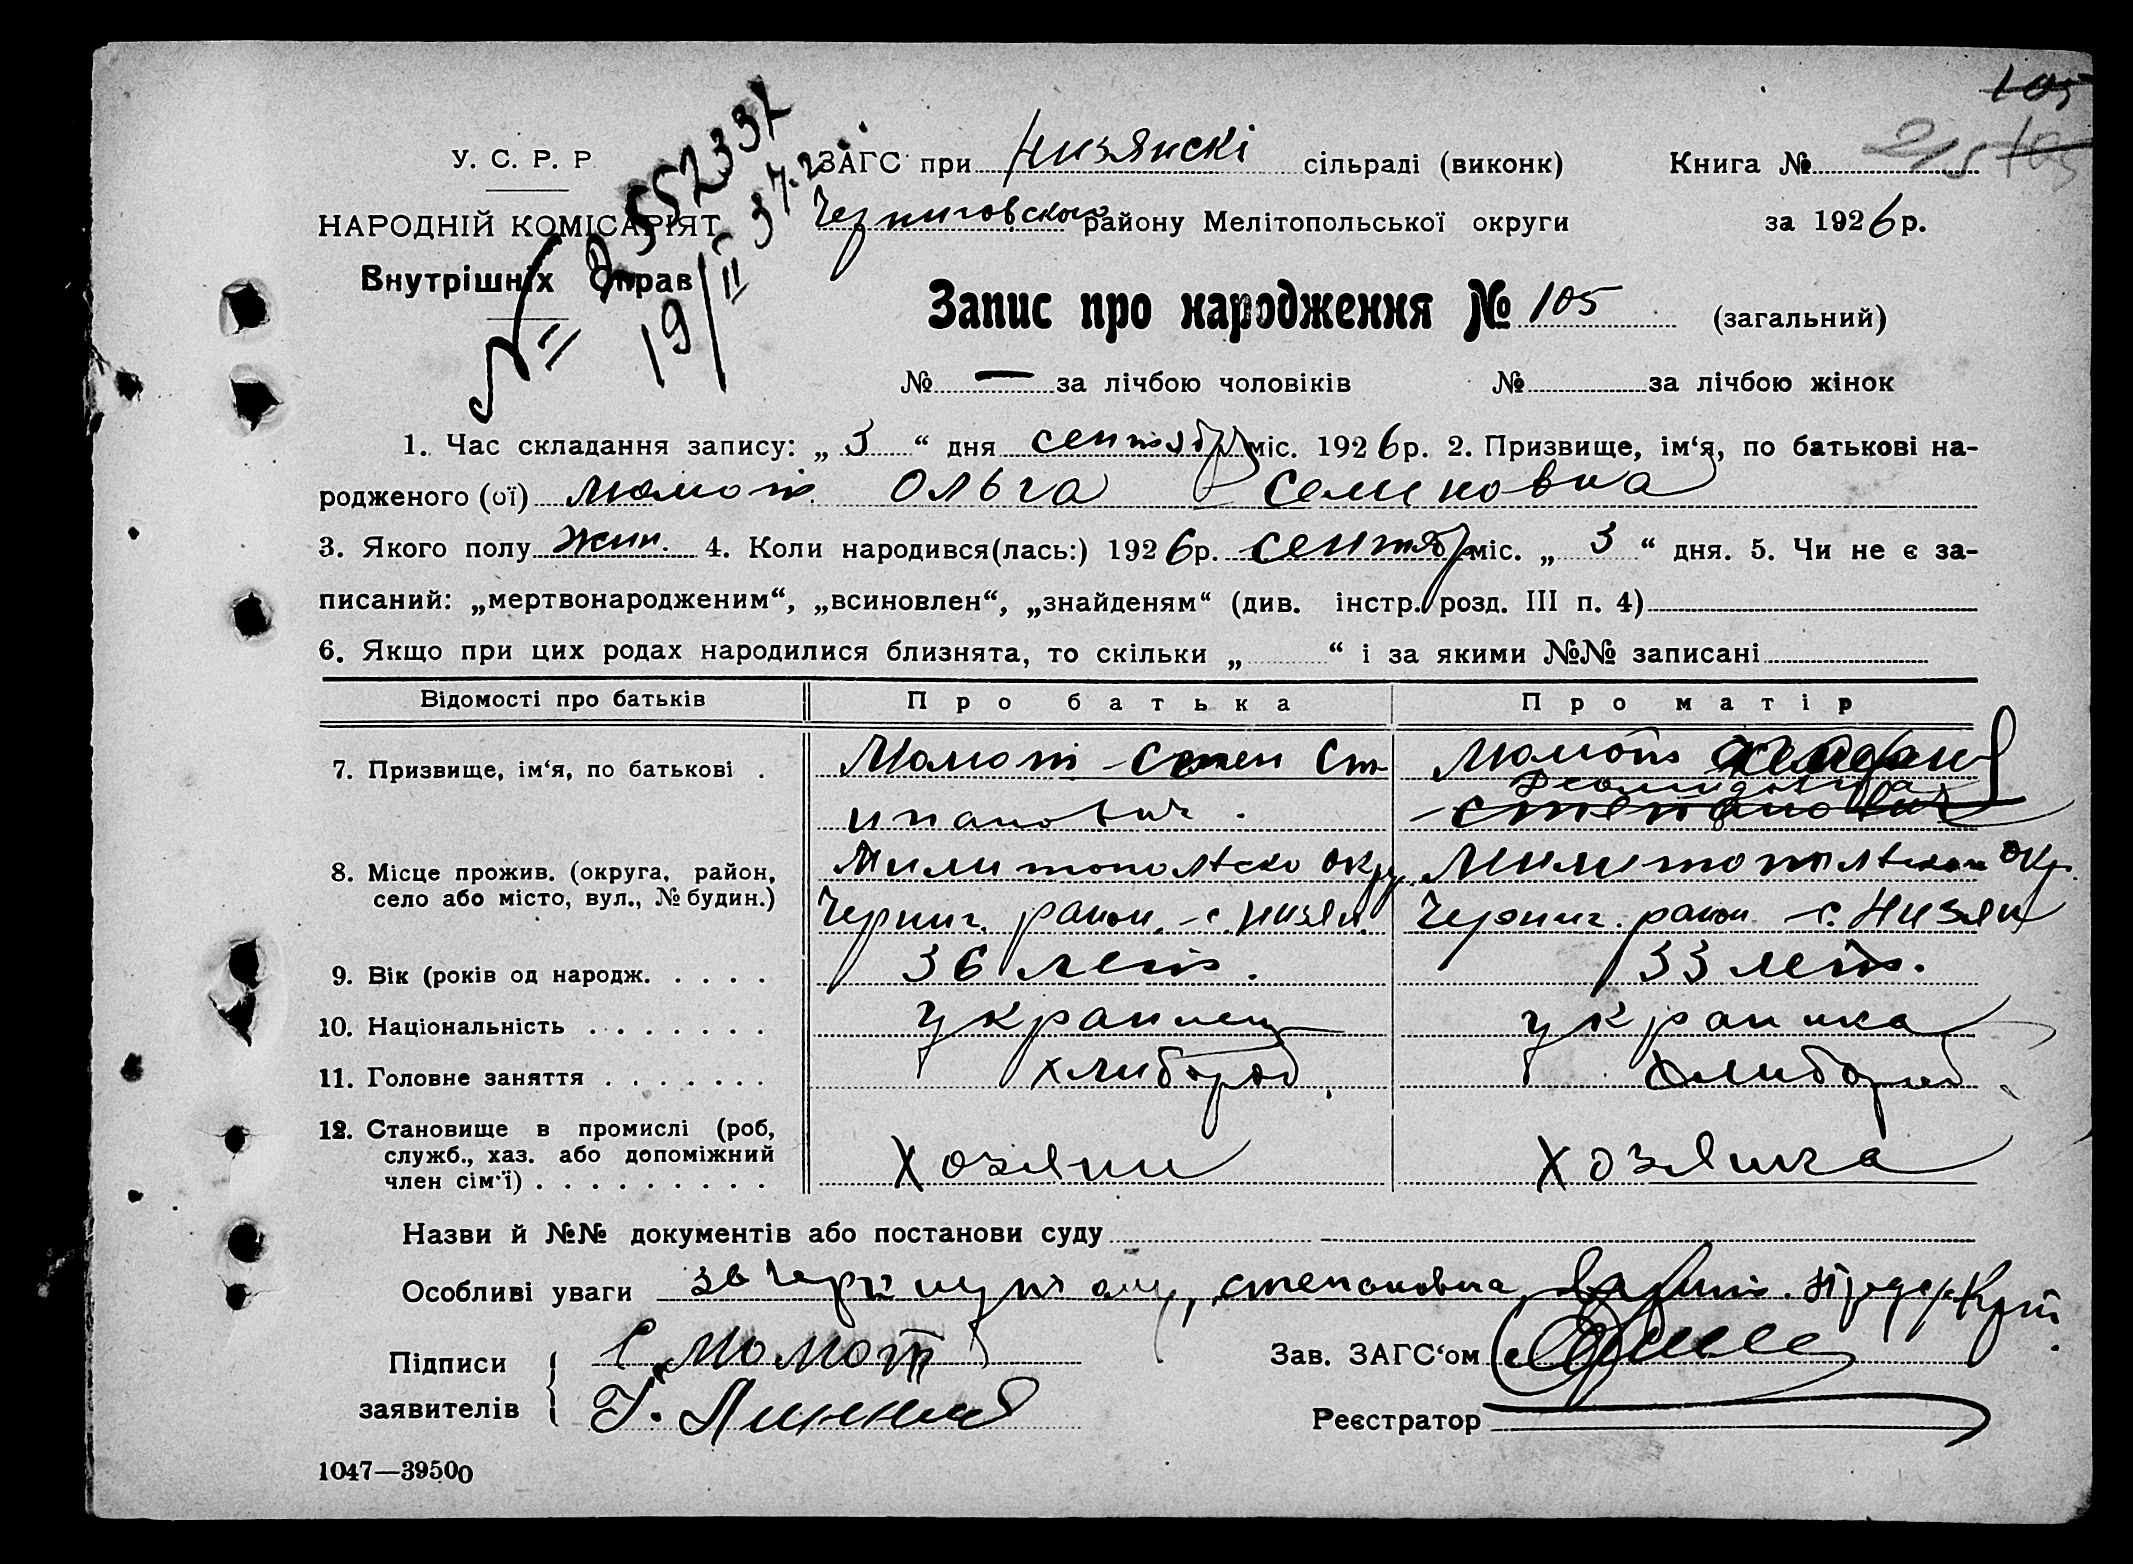 105
215 105
У. С. Р. Р.
ЗАГС при Низянскі сільраді (виконк) Книга №
НАРОДНІЙ КОМІСАРІЯТ Черниговского району Мелітопольської округи за 1926 р.
Внутрішніх Справ
552337
19/II 37.2.
Запис про народження № 105 (загальний)
№ — за лічбою чоловіків № за лічбою жінок
1. Час складання запису: „ 3 “ дня сентябр міс. 1926 р. 2. Призвище, ім‘я, по батькові на-
родженого (ої) Момот Ольга Семеновна
3. Якого полу жин. 4. Коли народився(лась:) 1926 р. сентябр міс. „ 3 “ дня. 5. Чи не є за-
писаний: „мертвонародженим“, „всиновлен“, „знайденям“ (див. інстр. розд. III п. 4)
6. Якщо при цих родах народилися близнята, то скільки „ “ і за якими №№ записані
Відомості про батьків Про батька Про матір
7. Призвище, ім‘я, по батькові . Момот Семен Ст Момот
ипанович . степанович
8. Місце прожив. (округа, район, Милитопольско окру Милитопольскои окр.
село або місто, вул., № будин.) Черниг. раион. с. низян. Черниг. раион с. Низян
9. Вік (років од народж. . . . . 36 лет. 33 лет.
10. Національність . . . . . . . украинец украинка
11. Головне заняття . . . . . . . хлибороб хлибороб
12. Становище в промислі (роб,
служб., хаз. або допоміжний хозяин хозяика
член сім‘ї) . . . . . . . . .
Назви й №№ документів або постанови суду
Особливі уваги степановна,
Підписи С. Момот Зав. ЗАГС‘ом
заявителів Реєстратор
1047—39500